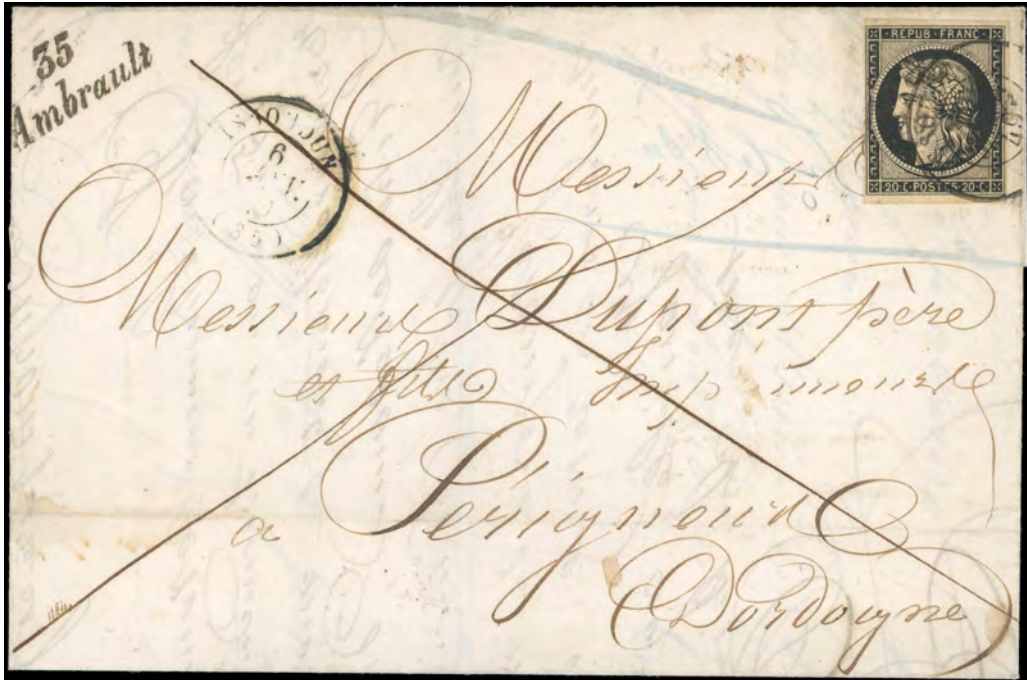 35
Ambrault
ISSOUDUN
6
(35)
REPUB·FRANC
20·C·POSTES·20·C
Messieurs
Messieurs Dupont père
et fils Imprimeurs
a Périgueux
Dordogne